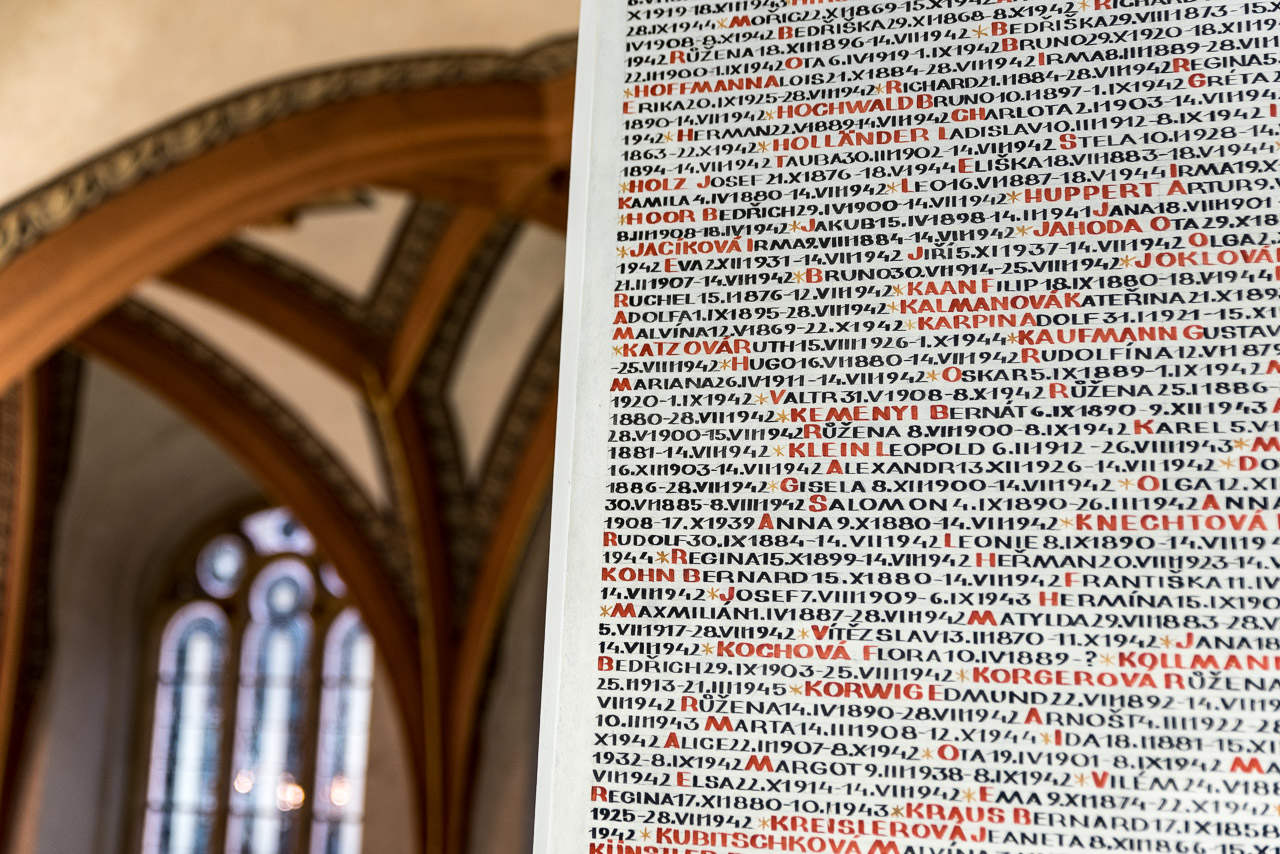 X1919-18.XII1943
28.IX1944*MORIC22.XII1869-15.X1942 *RICHARD
IV1908-8.X1942 BEDŘIŠKA29.XI1868-8.X1942 *BEDŘIŠKA29.VIII1873-15.X
1942 RŮŽENA18.XII1896-14.VII1942 BRUNO29.X1920-18.XII
22.II1900-1.IX1942 OTA6.IV1919-1.IX1942 IRMA8.III1889-28.VII
*HOFFMANN ALOIS21.X1884-28.VII1942*RICHARD21.II1884-28.VII1942 REGINA5.
ERIKA20.IX1925-28.VII1942*HOCHWALD BRUNO10.II1897-1.IX1942 GRÉTA
1890-14.VII1942 CHARLOTA2.I1903-14.VII1942
1942*HERMAN22.VII1889-14.VII1942*HOLLÄNDER LADISLAV10.III1912-8.IX1942
1863-22.X1942 TAUBA30.III1902-14.VII1942 STELA10.II1928-14.
1894-14.VII1942 ELIŠKA18.VII1883-18.V1944
*HOLZ JOSEF21.X1876-18.V1944 IRMA19.X
KAMILA4.IV1880-14.VII1942*LEO16.VI1887-18.V1944
*HOOR BEDŘICH29.IX1900-14.VII1942*HUPPERT ARTUR9.
8.II1908-18.IV1942*JAKUB15.IV1898-14.II1941 JANA18.VIII1901
*JACÍKOVÁ IRMA9.VIII1884-14.VII1942*JAHODA OTA29.X18
1942 EVA2XII1931-14.VII1942 JIŘÍ5.XI1937-14.VII1942 OLGA2.
21.II1907-14.VII1942*BRUNO30.VI1914-25.VIII1942*JOKLOVÁ
RUCHEL15.I1876-12.VII1942*KAAN FILIP18.IX1880-18.V1944
ADOLFA1.IX1895-28.VII1942*KALMANOVÁ KATEŘINA21.X189
MALVÍNA12.V1869-22.X1942*KARPIN ADOLF31.I1921-15.X
*KATZOVÁ RUTH15.VIII1926-1.X1944*KAUFMANN GUSTAV
-25.VIII1942*HUGO16.VI1880-14.VII1942 RUDOLFÍNA12.VI1879
MARIANA26.IV1911-14.VII1942*OSKAR5.IX1889-1.IX1942
1920-1.IX1942*VALTR31.V1908-8.X1942 RŮŽENA25.I1886-
1880-28.VII1942*KEMENYI BERNÁT6.IX1890-9.XII1943
28.V1900-15.VII1942 RŮŽENA8.VII1900-8.IX1942 KAREL5.VI
1881-14.VII1942*KLEIN LEOPOLD6.II1912-26.VIII1943*M
16.XII1903-14.VII1942 ALEXANDR13XII1926-14.VII1942*DO
1886-28.VII1942*GISELA8.VII1900-14.VII1942*OLGA12.XI
30.VI1885-8.VIII1942 SALOMON4.IX1890-26.III1942 ANNA
1908-17.X1939 ANNA9.X1880-14.VII1942*KNECHTOVÁ
RUDOLF30.IX1884-14.VII1942 LEONIE8.IX1890-14.VII19
1944*REGINA15.X1899-14.VII1942 HEŘMAN20.VIII1923-14.V
KOHN BERNARD15.X1880-14.VII1942 FRANTIŠKA11.IV
14.VII1942*JOSEF7.VIII1909-6.IX1943 HERMÍNA15.IX190
*MAXMILIÁN1.IV1887-28.VII1942 MATYLDA29.VII1883-28.V
5.VII1917-28.VII1942*VÍTĚZSLAV13.II1870-11.X1942*JANA18
14.VII1942*KOCHOVÁ FLORA10.IV1889-?*KOLLMANN
BEDŘICH29.IX1903-25.VIII1942*KORGEROVÁ RŮŽENA
25.I1913-21.III1945*KORWIG EDMUND22.VII1892-14.VII19
VII1942 RŮŽENA14.IV1890-28.VII1942 ARNOŠT4.III1922-28
10.II1943 MARTA14.III1908-12.X1944*IDA18.I1881-15.XI
X1942 ALICE22.II1907-8.X1942*OTA19.IV1901-8.IX1942 MA
1932-8.IX1942 MARGOT9.III1938-8.IX1942*VILÉM24.V188
VII1942 ELSA22.X1914-14.VII1942*EMA9.XI1874-22.X1942
REGINA17.XI1880-10.I1943*KRAUS BERNARD17.IX1858
1925-28.VII1942*KREISLEROVÁ JEANETA8.XII1866-15.X
1942*KUBITSCHKOVÁ MALVÍNA
KÜNSTLER